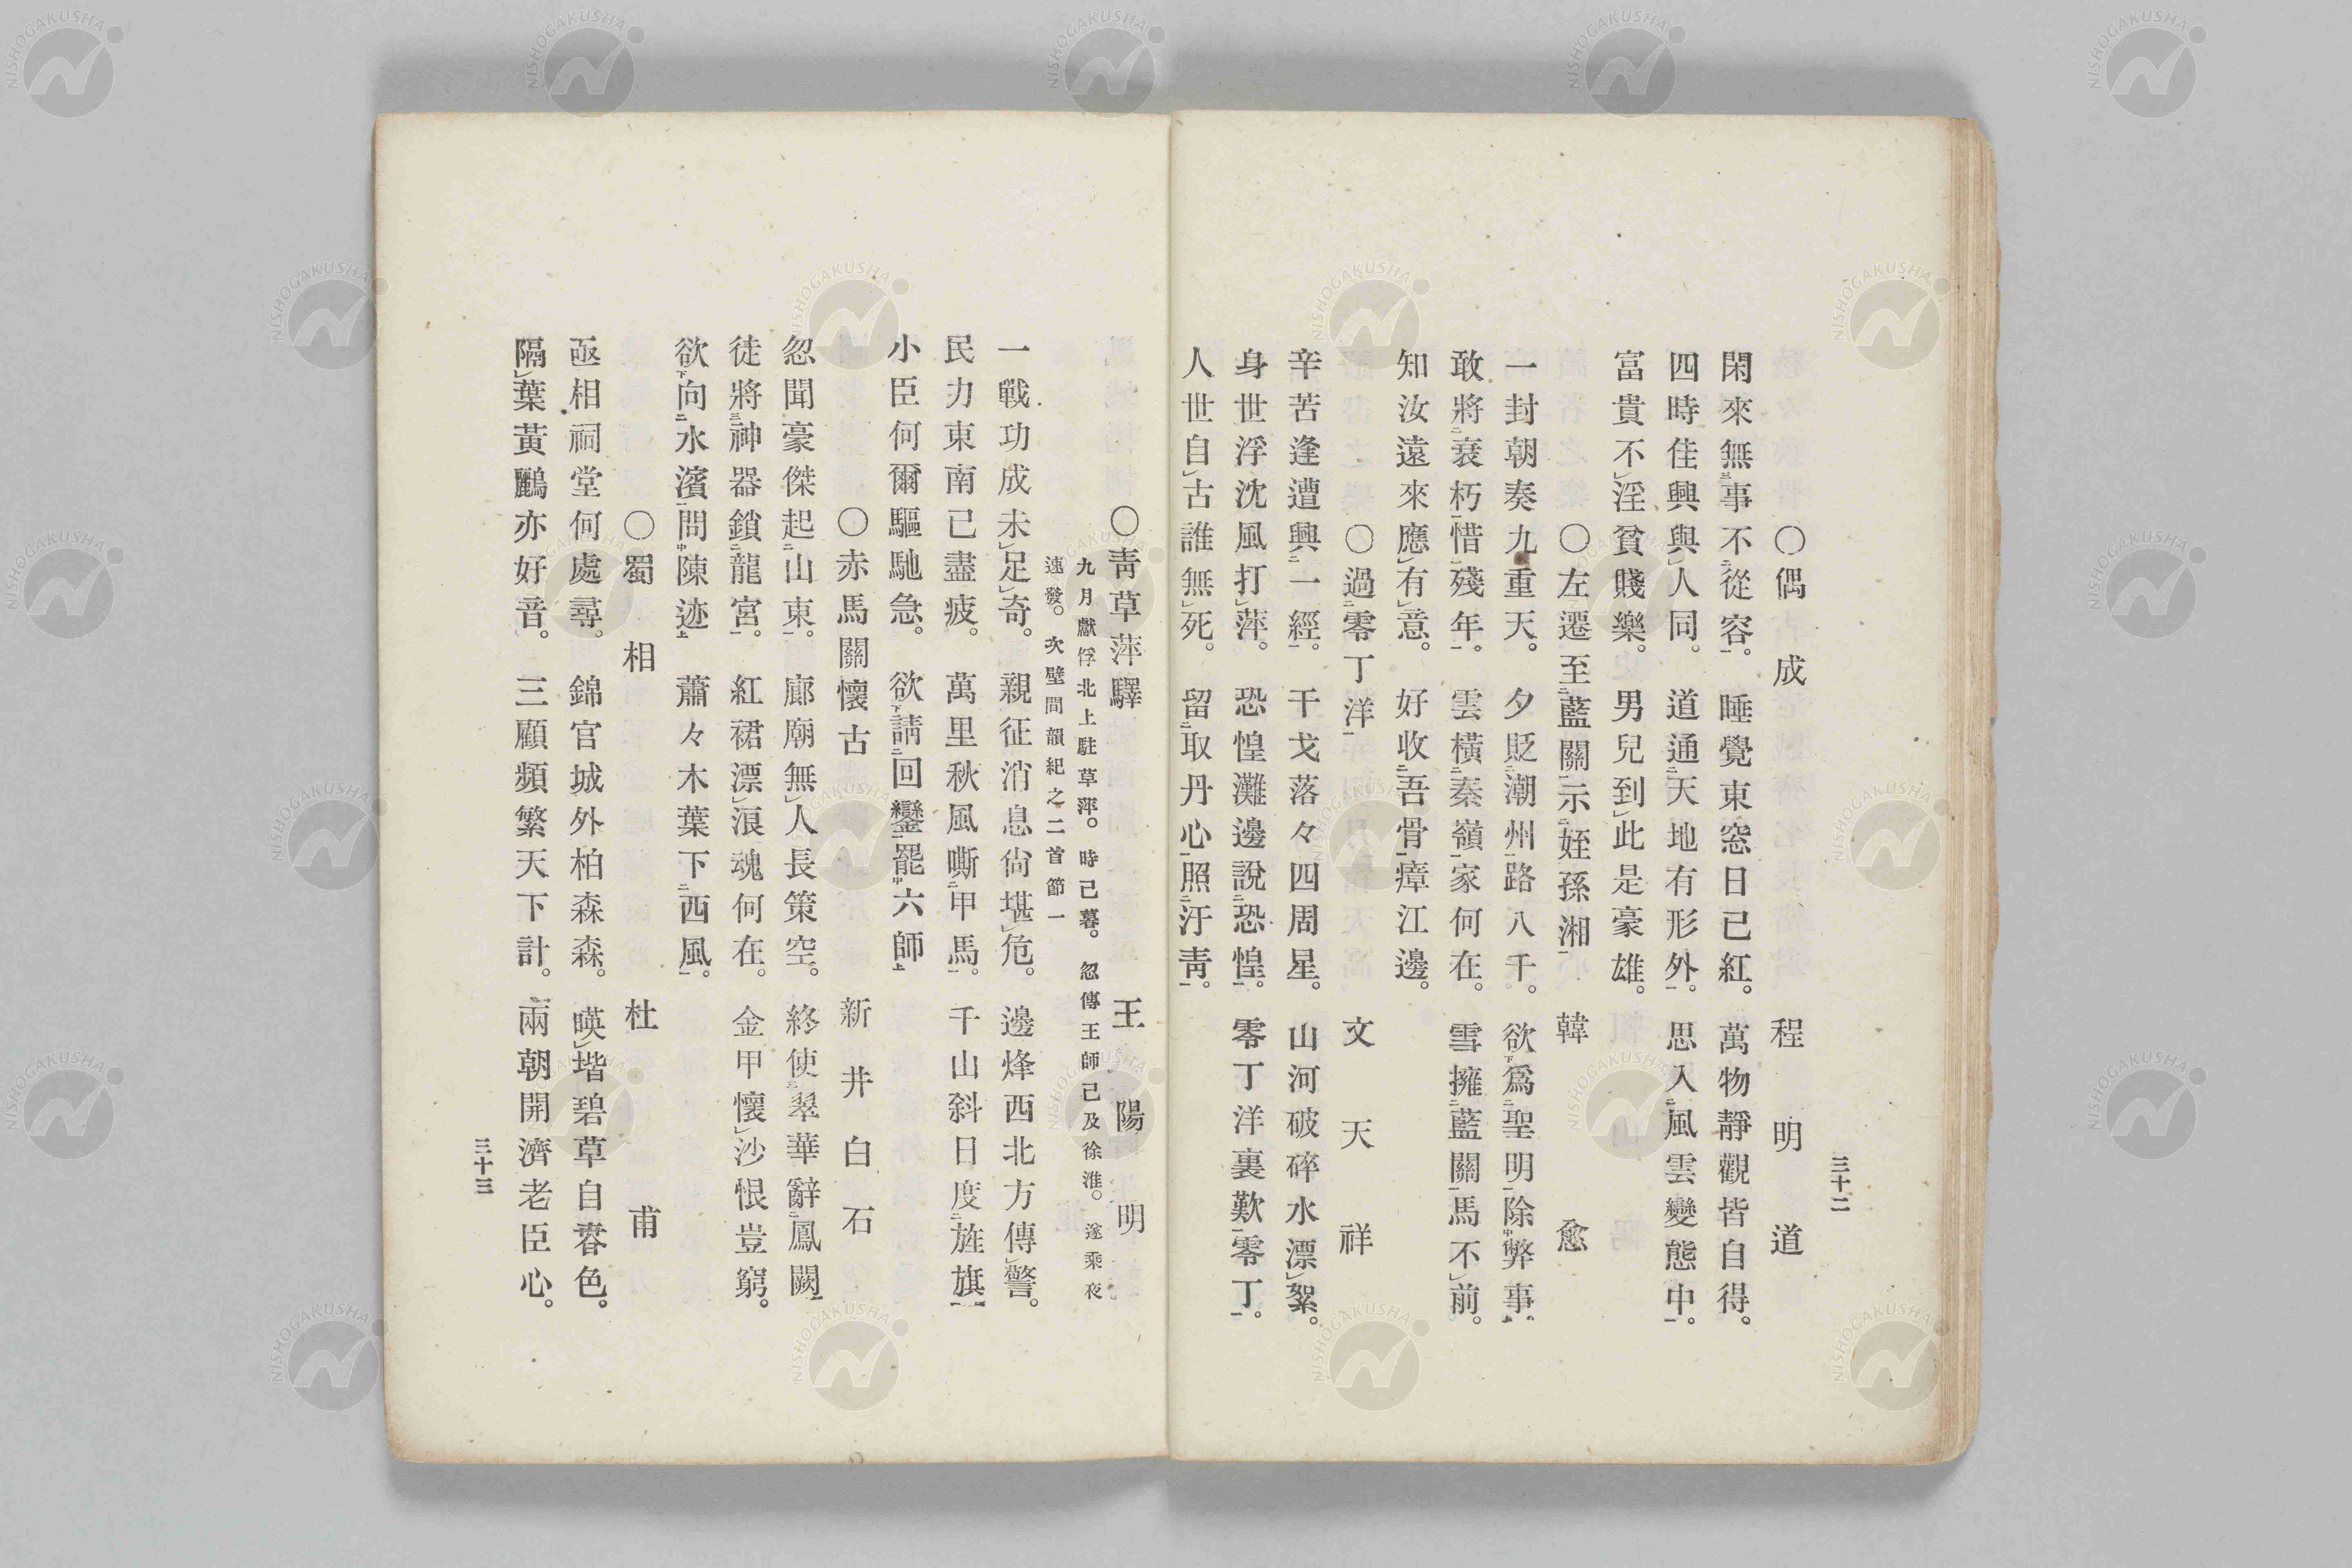 三十二
○偶成　程明道
閑來無三事不二從容一。睡覺東窓日已紅。萬物靜觀皆自得。
四時佳興與レ人同。道通二天地有形外一。思入二風雲變態中一。
富貴不レ淫貧賤樂。男兒到レ此是豪雄。
○左遷至二藍關一示二姪孫湘一　韓愈
一封朝奏九重天。夕貶二潮州一路八千。欲下爲二聖明一除中弊事上。
敢將二衰朽一惜二殘年一。雲橫二秦嶺一家何在。雪擁二藍關一馬不レ前。
知汝遠來應レ有レ意。好收二吾骨一瘴江邊。
○過二零丁洋一　文天祥
辛苦逢遭興二一經一。干戈落々四周星。山河破碎水漂レ絮。
身世浮沈風打レ萍。恐惶灘邊說二恐惶一。零丁洋裏歎二零丁一。
人世自レ古誰無レ死。留二取丹心一照二汗靑一。
○靑草萍驛　王陽明
九月獻俘北上駐草萍。時已暮。忽傳王師已及徐淮。遂乘夜
速發。次壁間韻紀之二首節一
一戰功成未レ足レ奇。親征消息尙堪レ危。邊烽西北方傳レ警。
民力東南已盡疲。萬里秋風嘶二甲馬一。千山斜日度二旌旗一
小臣何爾驅馳急。欲下請二回鑾一罷中六師上
○赤馬關懷古　新井白石
忽聞豪傑起二山東一。廊廟無レ人長策空。終使三翠華辭二鳳闕一
徒將三神器鎖二龍宮一。紅裙漂レ浪魂何在。金甲懷レ沙恨豈窮。
欲下向二水濱一問中陳迹上蕭々木葉下二西風一。
○蜀相　杜甫
丞相祠堂何處尋。錦官城外柏森森。暎レ堦碧草自春色。
隔レ葉黃鸝亦好音。三顧頻繁天下計。兩朝開濟老臣心。
三十三
NISHOGAKUSHA